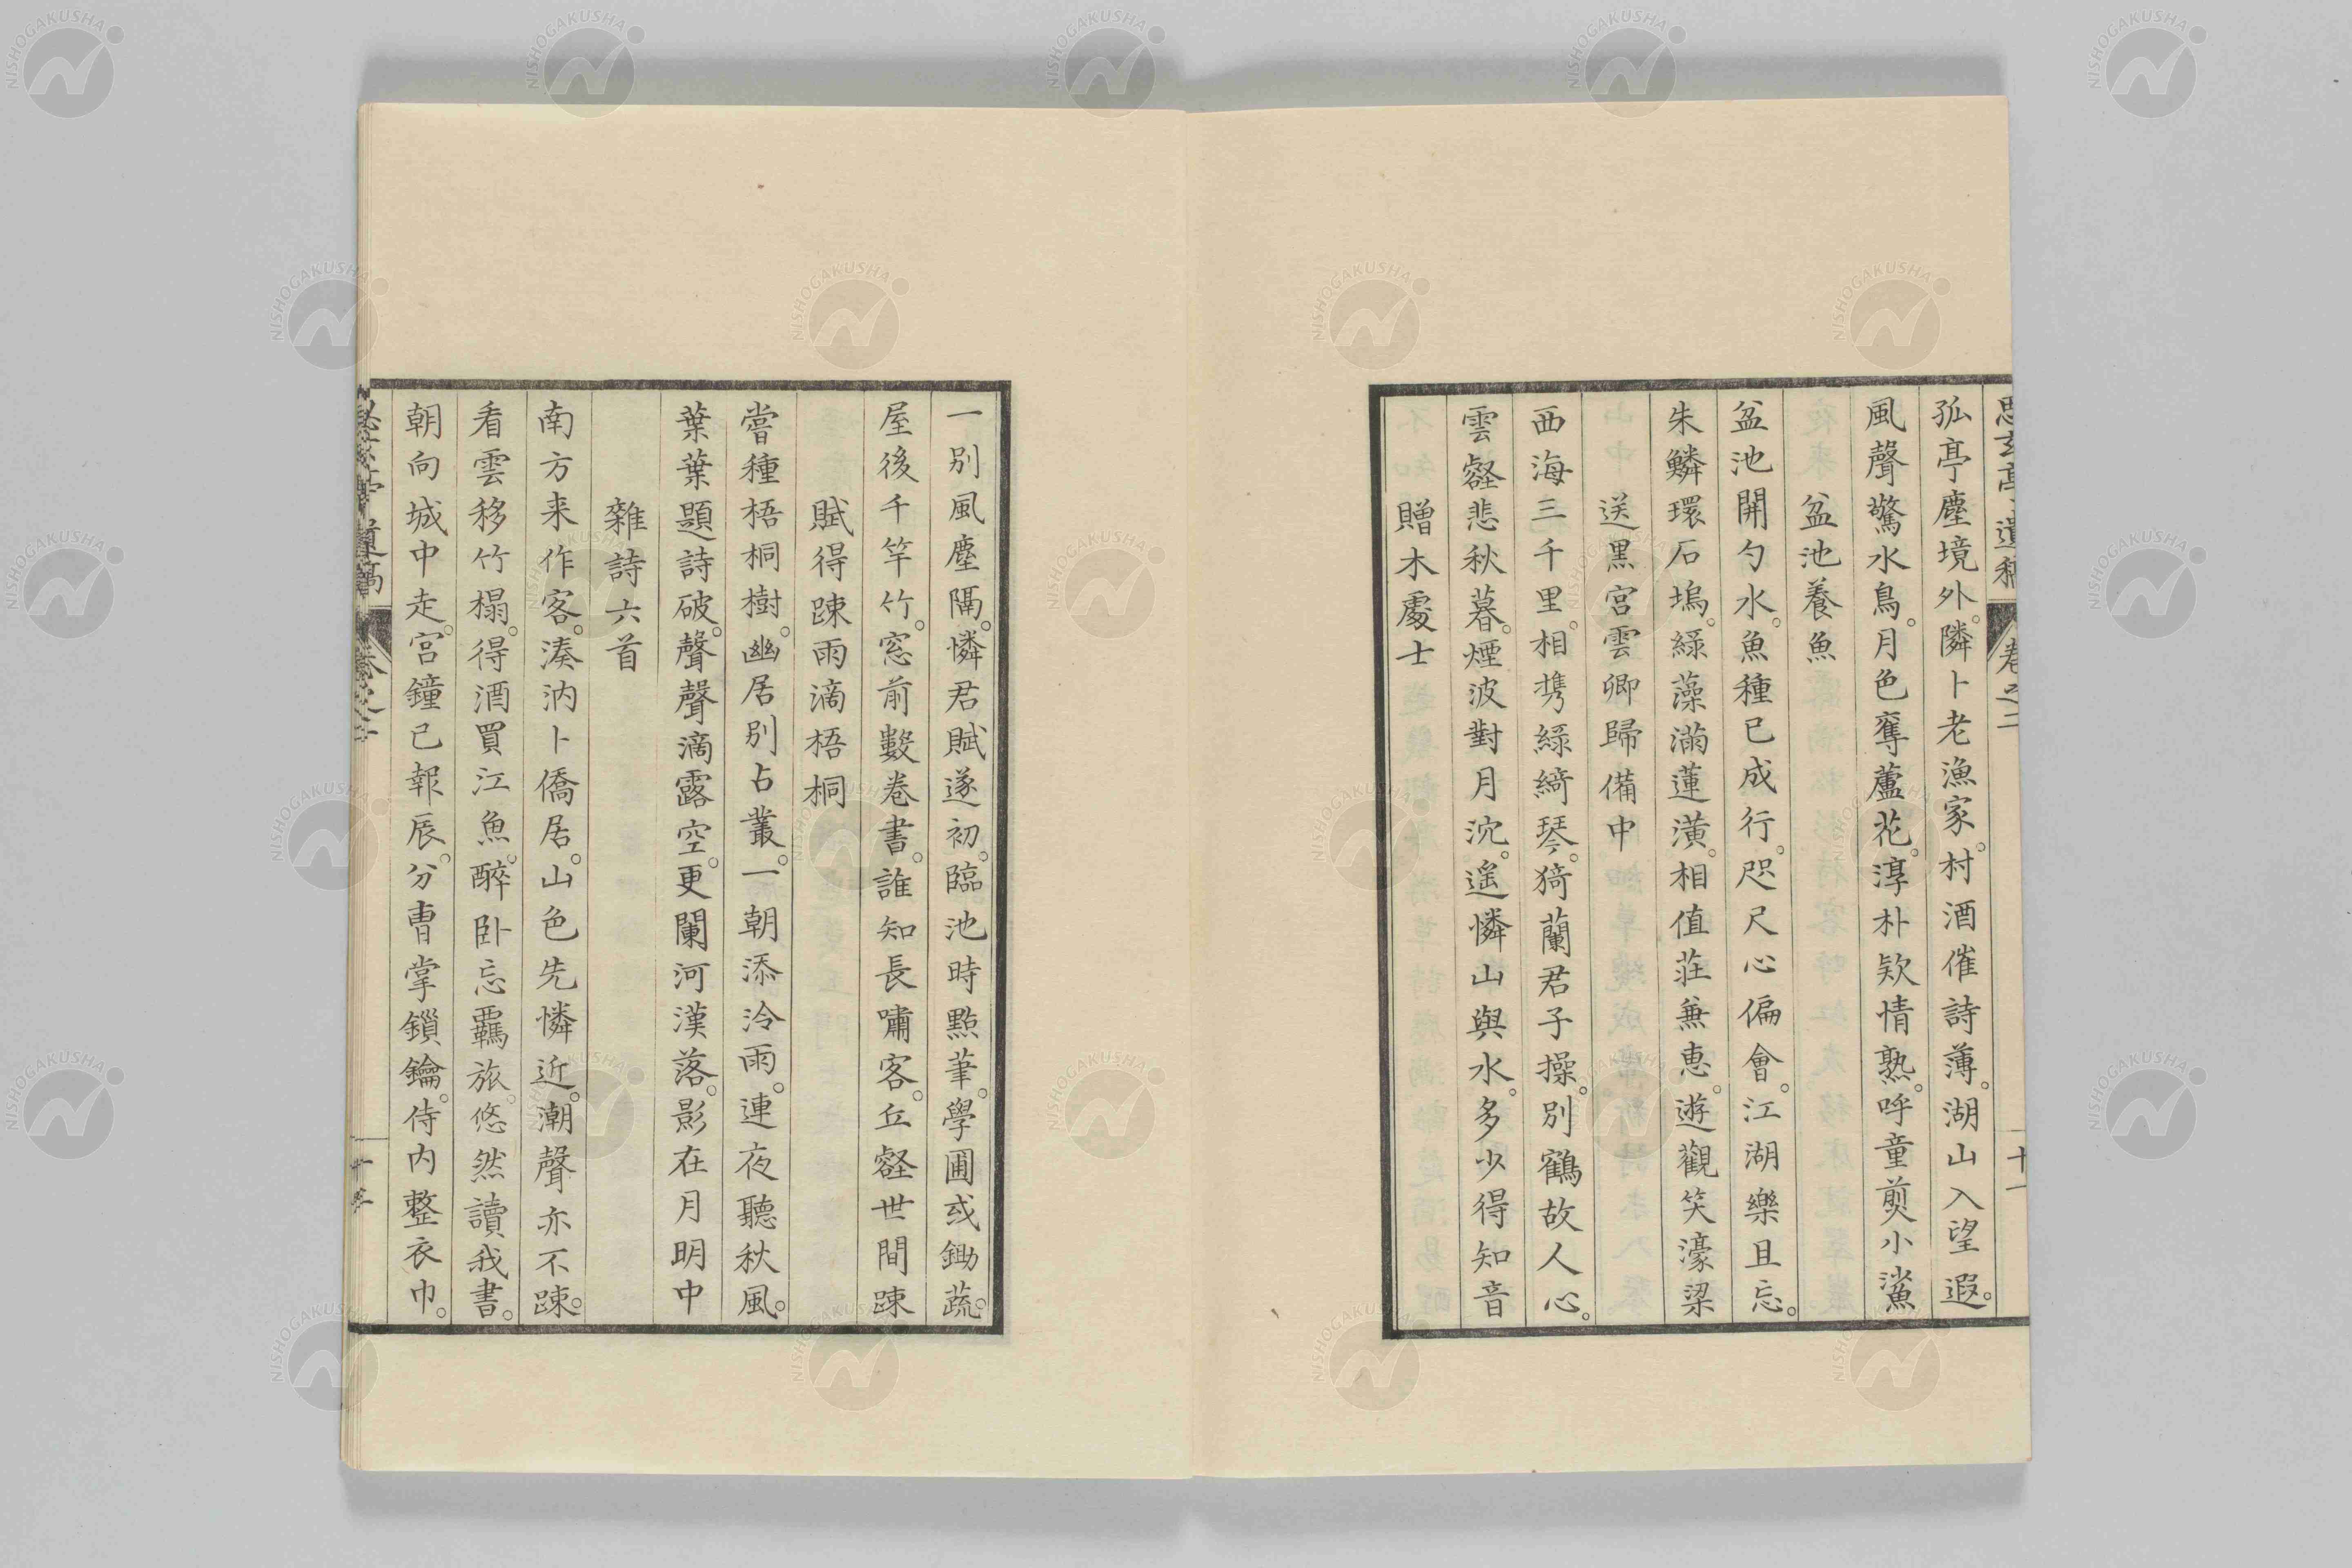 思玄亭遺稿 卷之二 十一
孤亭塵境外。隣卜老漁家。村酒催詩薄。湖山入望遐。
風聲驚水鳥。月色奪蘆花。淳朴欵情熟。呼童煎小鯊
盆池養魚
盆池開勺水。魚種已成行。咫尺心偏會。江湖樂且忘。
朱鱗環石塢。緑藻滿蓮潢。相值莊兼惠。遊觀笑濠梁
送黑宮雲卿歸備中
西海三千里。相携綠綺琴。猗蘭君子操。別鶴故人心。
雲壑悲秋暮。煙波對月沈。遙憐山與水。多少得知音
贈木處士
一別風塵隔。憐君賦遂初。臨池時點筆。學圃或鋤蔬。
屋後千竿竹。窓前數卷書。誰知長嘯客。丘壑世間踈
賦得踈雨滴梧桐
嘗種梧桐樹。幽居別占叢。一朝添冷雨。連夜聽秋風。
葉葉題詩破。聲聲滴露空。更闌河漢落。影在月明中
雜詩六首
南方来作客。湊汭卜僑居。山色先憐近。潮聲亦不踈。
看雲移竹榻。得酒買江魚。醉卧忘羈旅。悠然讀我書。
朝向城中走。宮鐘已報辰。分曹掌鎖鑰。侍内整衣巾。
NISHOGAKUSHA